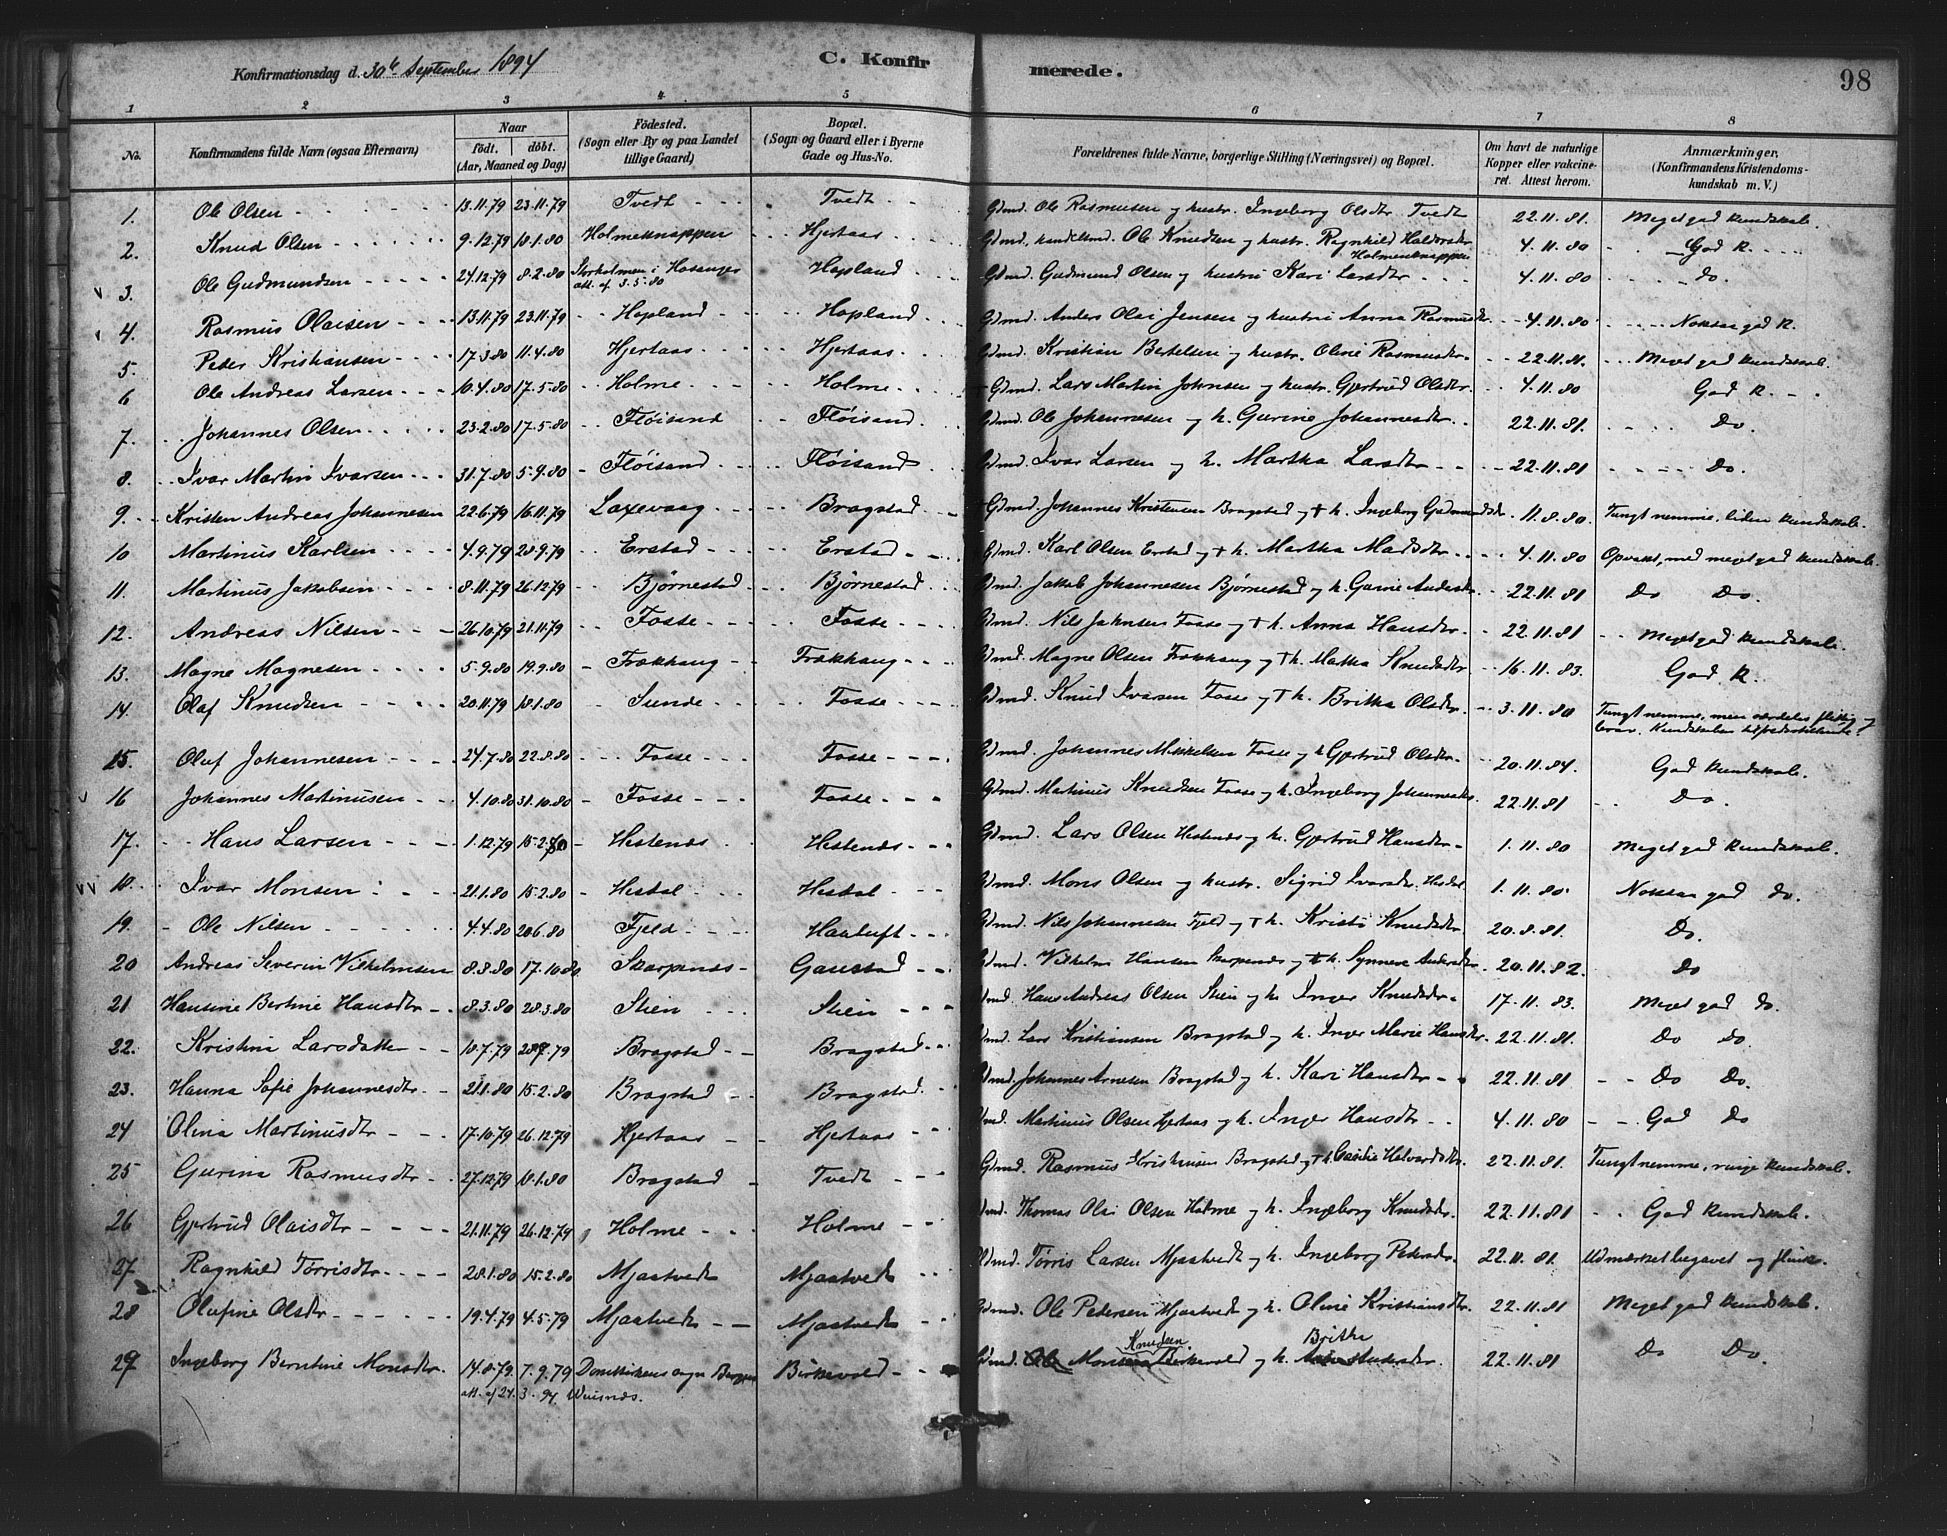 Konfirmationsdag d. 30te September 1894 C. Konfirmerede. 98
1 2 3 4 5 6 7 8
No. Konfirmandens fulde Navn (ogsaa Efternavn) Naar födt. döbt. (Aar, Maaned og Dag) Födested. (Sogn eller By og paa Landet tillige Gaard) Bopæl. (Sogn og Gaard eller i Byerne Gade og Hus-No. Forældrenes fulde Navne, borgerlige Stilling (Næringsvei) og Bopæl. Om havt de naturlige Kopper eller vakcineret. Attest herom. Anmærkninger. (Konfirmandens Kristendomskundskab m. V.)
1. Ole Olsen 13.11.79 23.11.79 Tvedt Tvedt Gdmd. Ole Rasmusen og hustr. Ingeborg Olsdtr Tvedt 22.11.81. Meget god kundskab.
2. Knud Olsen 9.12.79 18.1.80 Holmeknappen Hjertaas Gdmd. handelsmd. Ole Knudsen og hustr. Ragnhild Haldorsdtr Holmeknappen 4.11.80 God K.
3. Ole Gudmundsen 24.12.79 8.2.80 Storholmen i Hosanger att. af 3.5.80 Hopland Gdmd. Gudmund Olsen og hustru Kari Larsdtr 4.11.80 Do.
4. Rasmus Olaisen 13.11.79 23.11.79 Hopland Hopland Gdmd. Anders Olai Jensen og hustru Anna Rasmusdtr. 4.11.80 Noksaa god K.
5. Peder Kristiansen 17.3.80 11.4.80 Hjertaas Hjertaas Gdmd. Kristian Bertelsen og hustr. Oline Rasmusdtr. 22.11.81. Meget god kundskab.
6 Ole Andreas Larsen 10.4.80 17.5.80 Holme Holme Gdmd. Lars Martin Johnsen og hustr. Gjertrud Olsdtr. 4.11.80 God K.
7. Johannes Olsen 23.2.80 17.5.80 Fløisand Fløisand Gdmd. Ole Johannesen og h. Gurine Johannesdtr. 22.11.81. Do.
8. Ivar Martin Ivarsen 31.7.80 5.9.80 Fløisand Fløisand Gdmd. Ivar Larsen og h. Martha Larsdtr 22.11.81 Do.
9. Kristen Andreas Johannesen 22.6.79 16.11.79 Laxevaag Bragstad Gdmd. Johannes Kristensen Bragstad og † h. Ingeborg Gudmundsdtr 11.8.80. Tungt nemme, liden kundskab.
10 Martinus Karlsen 4.9.79 28.9.79 Erstad Erstad Gdmd. Karl Olsen Erstad og † h. Martha Madsdtr 4.11.80 Opvakt, med meget god kundskab.
11. Martinus Jakobsen 8.11.79 26.12.79 Bjørnestad Bjørnestad Gdmd. Jakob Johannesen Bjørnestad og h. Gurine Andersdtr 22.11.81 Do Do.
12. Andreas Nilsen 26.10.79 21.11.79 Fosse Fosse Gdmd. Nils Johnsen Fosse og † h. Anna Hansdtr. 22.11.81 Meget god kundskab.
13. Magne Magnesen 5.9.80 19.9.80 Frækhaug Frækhaug Gdmd. Magne Olsen Frækhaug og † h. Knudsdtr 16.11.83. God K.
14. Olaf Knudsen 20.11.79 18.1.80 Sunde Fosse Gdmd. Knud Ivarsen Fosse og † h. Britha Olsdtr. 3.11.80 Tungt nemme, men særdeles flittig og brav. Kundskaben tilfredsstillende.
15. Oluf Johannesen 24.7.80 22.8.80 Fosse Fosse Gdmd. Johannes Mikkelsen Fosse og h. Gjertrud Olsdtr. 20.11.84. God kundskab.
16 Johannes Martinusen 4.10.80 31.10.80 Fosse Fosse Gdmd. Martinus Knudsen Fosse og h. Ingeborg Johannesdtr 22.11.81 Do.
17. Hans Larsen 1.12.79 15.2.80 Hestenes Hestenes Gdmd. Lars Olsen Hestenes og h. Gjertrud Hansdtr. 1.11.80 Meget god kundskab.
18. Ivar Monsen 21.1.80 15.2.80 Hestdal Hestdal Gdmd. Mons Olsen og hustr. Sigrid Ivarsdtr. Hesdal 1.11.80 Noksaa god do.
19. Ole Nilsen 4.4.80 20.6.80 Fjeld Haaluft Gdmd. Nils Johannesen Fjeld og † h. Kristi Knudsdtr 20.8.81. Do.
20 Andreas Severin Vilhelmsen 8.8.80 17.10.80 Skarpenes Gaustad Gdmd. Vilhelm Hansen Skarpenes og † h. Synneve Andersdtr 20.11.82. Do
21 Hansine Bertine Hansdtr 8.3.80 28.3.80 Stien Stien Gdmd. Hans Andreas Olsen Stien og h. Inger Knudsdtr. 17.11.83. Meget god do.
22. Kristina Larsdatter 10.7.79 20.7.79 Bragstad Bragstad Gdmd. Lars Kristiansen Bragstad og h. Inger Marie Hansdtr. 22.11.81. Do Do.
23. Hanna Sofie Johannesdtr 21.1.80 15.2.80 Bragstad Bragstad Gdmd. Johannes Arnesen Bragstad og h. Kari Hansdtr 22.11.81 Do Do.
24 Olina Martinusdtr 17.10.79 26.12.79 Hjertaas Hjertaas Gdmd. Martinus Olsen Hjertaas og h. Inger Hansdtr. 4.11.80 God Do
25 Gurina Rasmusdtr. 27.12.79 18.1.80 Bragstad Tvedt Gdmd. Rasmus Kristiansen Bragstad og † h. Halvardsdtr. 22.11.81. Tungt nemme, ringe kundskab.
26 Gjertrud Olaisdtr 21.11.79 26.12.79 Holme Holme Gdmd. Thomas Olai Olsen Holme og h. Ingeborg Knudsdtr. 22.11.81 God kundskab.
27 Ragnhild Tørrisdtr. 28.1.80 15.2.80 Mjaatvedt Mjaatvedt Gdmd. Tørris Larsen Mjaatvedt og h. Ingeborg Pedersdtr 22.11.81. Udmærket begavet og flink.
28 Olufine Olsdtr 19.4.79 4.5.79 Mjaatvedt Mjaatvedt Gdmd. Ole Pedersen Mjaatvedt og h. Oline Kristiansdtr. 22.11.81 Meget god kundskab.
29 Ingeborg Berntine Monsdtr. 14.8.79 7.9.79 Domkirkens sogn Bergen Birkevold Gdmd. Mons Knudsen Birkevold og h. Britha Andersdtr. 22.11.81 Do Do.
att. af 24.3.94